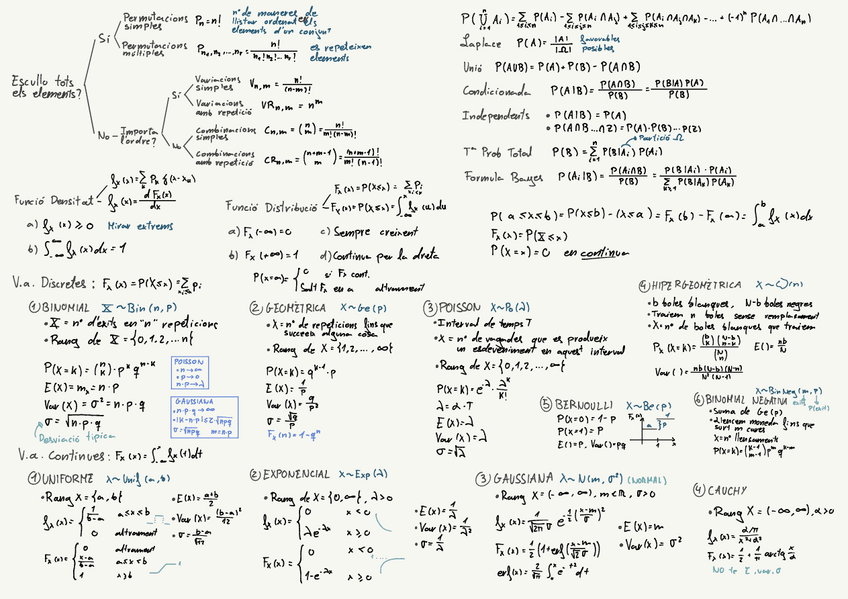 Escullo tots els elements?
Sí
Permutacions simples Pn = n! nº de maneres de llistar ordenat els elements d'un conjunt
Permutacions múltiples P n1, n2, ..., nr = n! / n1! n2! ... nr! es repeteixen elements
No - Importa l'ordre?
Sí
Variacions simples Vn,m = n! / (n-m)!
Variacions amb repetició VRn,m = n^m
No
Combinacions simples Cn,m = (n m) = n! / m!(n-m)!
Combinacions amb repetició CRn,m = (n+m-1 m) = (n+m-1)! / m!(n-1)!
Laplace P(A) = |A| / |Ω| favorables possibles
Unió P(A∪B) = P(A) + P(B) - P(A∩B)
Condicionada P(A|B) = P(A∩B) / P(B) = P(B|A) P(A) / P(B)
Independents • P(A|B) = P(A)
• P(A∩B...∩Z) = P(A)·P(B)...P(Z)
Partició Ω
Tª Prob Total P(B) = Σ P(B|Ai) P(Ai)
Formula Bayes P(Ai|B) = P(Ai∩B) / P(B) = P(B|Ai)·P(Ai) / Σ P(B|Ak) P(Ak)
Funció Densitat
fx(x) = d Fx(x) / dx
a) fx(x) ≥ 0 Mirar extrems
b) ∫ fx(x)dx = 1
Funció Distribució
Fx(x) = P(X≤x) = Σ Pi
Fx(x) = P(X≤x) = ∫ fx(u)du
a) Fx(-∞) = 0 c) Sempre creixent
b) Fx(+∞) = 1 d) Continua per la dreta
P(X=a) = { 0 si Fx cont.
Salt Fx en a altrament
P(a≤x≤b) = P(x≤b) - (x≤a) = Fx(b) - Fx(a) = ∫ fx(x)dx
Fx(x) = P(X≤x)
P(X=x) = 0 en continua
V.a. Discretes: Fx(x) = P(X≤x) = Σ Pi
① BINOMIAL X~Bin(n, p)
• X = nº d'èxits en "n" repeticions
• Rang de X = {0,1,2,...n}
P(X=k) = (n k)·p^k q^n-k
E(X) = mx = n·p
Var(X) = σ² = n·p·q
σ = √n·p·q
Desviació típica
POISSON
• n→∞
• p→0
• n·p→λ
GAUSSIANA
• n·p·q→∞
σ = √npq m = np
② GEOMÈTRICA X~Ge(p)
• X = nº de repeticions fins que succeeix alguna cosa
• Rang de X = {1,2,...,∞}
P(X=k) = q^k-1·p
E(X) = 1/p
Var(X) = q/p²
σ = √q/p
Fx(n) = 1-q^n
③ POISSON X~Po(λ)
• Interval de temps T
• X = nº de vegades que es produeix un esdeveniment en aquest interval
• Rang de X = {0,1,2,...,∞}
P(X=k) = e^-λ·λ^k/k!
λ = α·T
E(X) = λ
Var(X) = λ
σ = √λ
④ HIPERGEOMÈTRICA
• b boles blanques, N-b boles negres
• Traiem n boles sense remplaçament
• X = nº de boles blanques que traiem
Px(X=k) = (b k)(N-b n-k) / (N n) E() = nb/N
Var() = nb(N-b)(N-n) / N²(N-1)
⑤ BERNOULLI X~Be(p)
P(X=0) = 1-p
P(X=1) = p
E() = p Var() = pq
⑥ BINOMIAL NEGATIVA X~BinNeg(m,p)
• Suma de Ge(p)
• Llencem moneda fins que surt m cares
X = nº llençaments
P(X=k) = (k-1 m-1) p^m q^k-m
V.a. Continues: Fx(x) = ∫ fx(t)dt
① UNIFORME X~Unif(a,b)
• Rang X = {a,b} • E(X) = a+b/2
fx(x) = { 1/b-a a≤x≤b • Var(X) = (b-a)²/12
0 altrament • σ = b-a/√12
Fx(x) = { 0 altrament
x-a/b-a a≤x≤b
1 x>b
② EXPONENCIAL X~Exp(λ)
• Rang de X = {0,∞}, λ>0
fx(x) = { 0 x<0
λe^-λx x≥0
Fx(x) = { 0 x<0
1-e^-λx x≥0
• E(X) = 1/λ
• Var(X) = 1/λ²
• σ = 1/λ
③ GAUSSIANA λ~N(m, σ²) (NORMAL)
• Rang X = (-∞,∞), m∈ℝ, σ>0
fx(x) = 1/√2πσ e^-1/2(x-m/σ)²
Fx(x) = 1/2(1+erf(x-m/√2σ))
erf(x) = 2/√π ∫ e^-t² dt
• E(X) = m
• Var(X) = σ²
④ CAUCHY
• Rang X = (-∞,∞), α>0
fx(x) = α/π / x²+α²
Fx(x) = 1/2 + 1/π arctg x/α
NO té E, var, σ